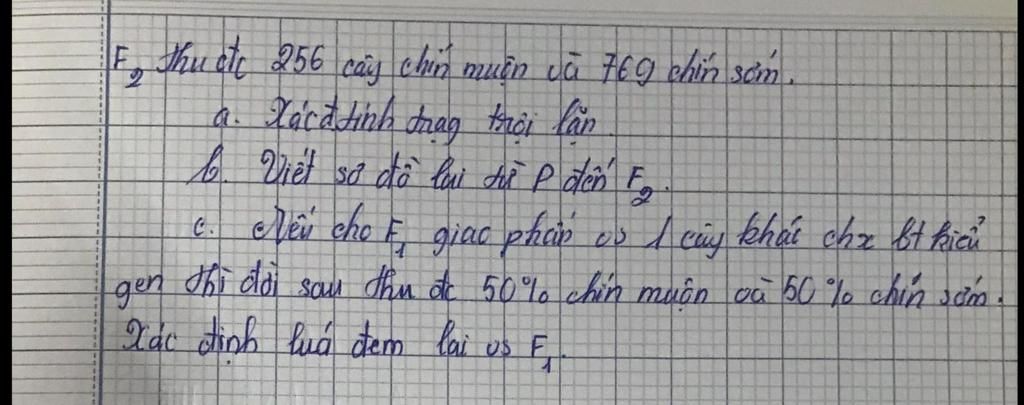 F₂ thu đc 256 cây chín muộn và 769 chín sớm.
a. Xác đ tính trạg trội lặn
b. Viết sơ đồ lai từ P đến F₂.
c. Nếu cho F₁ giao phấn vs 1 cây khác chx bt kiểu
gen thì đời sau thu đc 50% chín muộn và 50% chín sớm.
Xác định luá đem lai vs F₁.